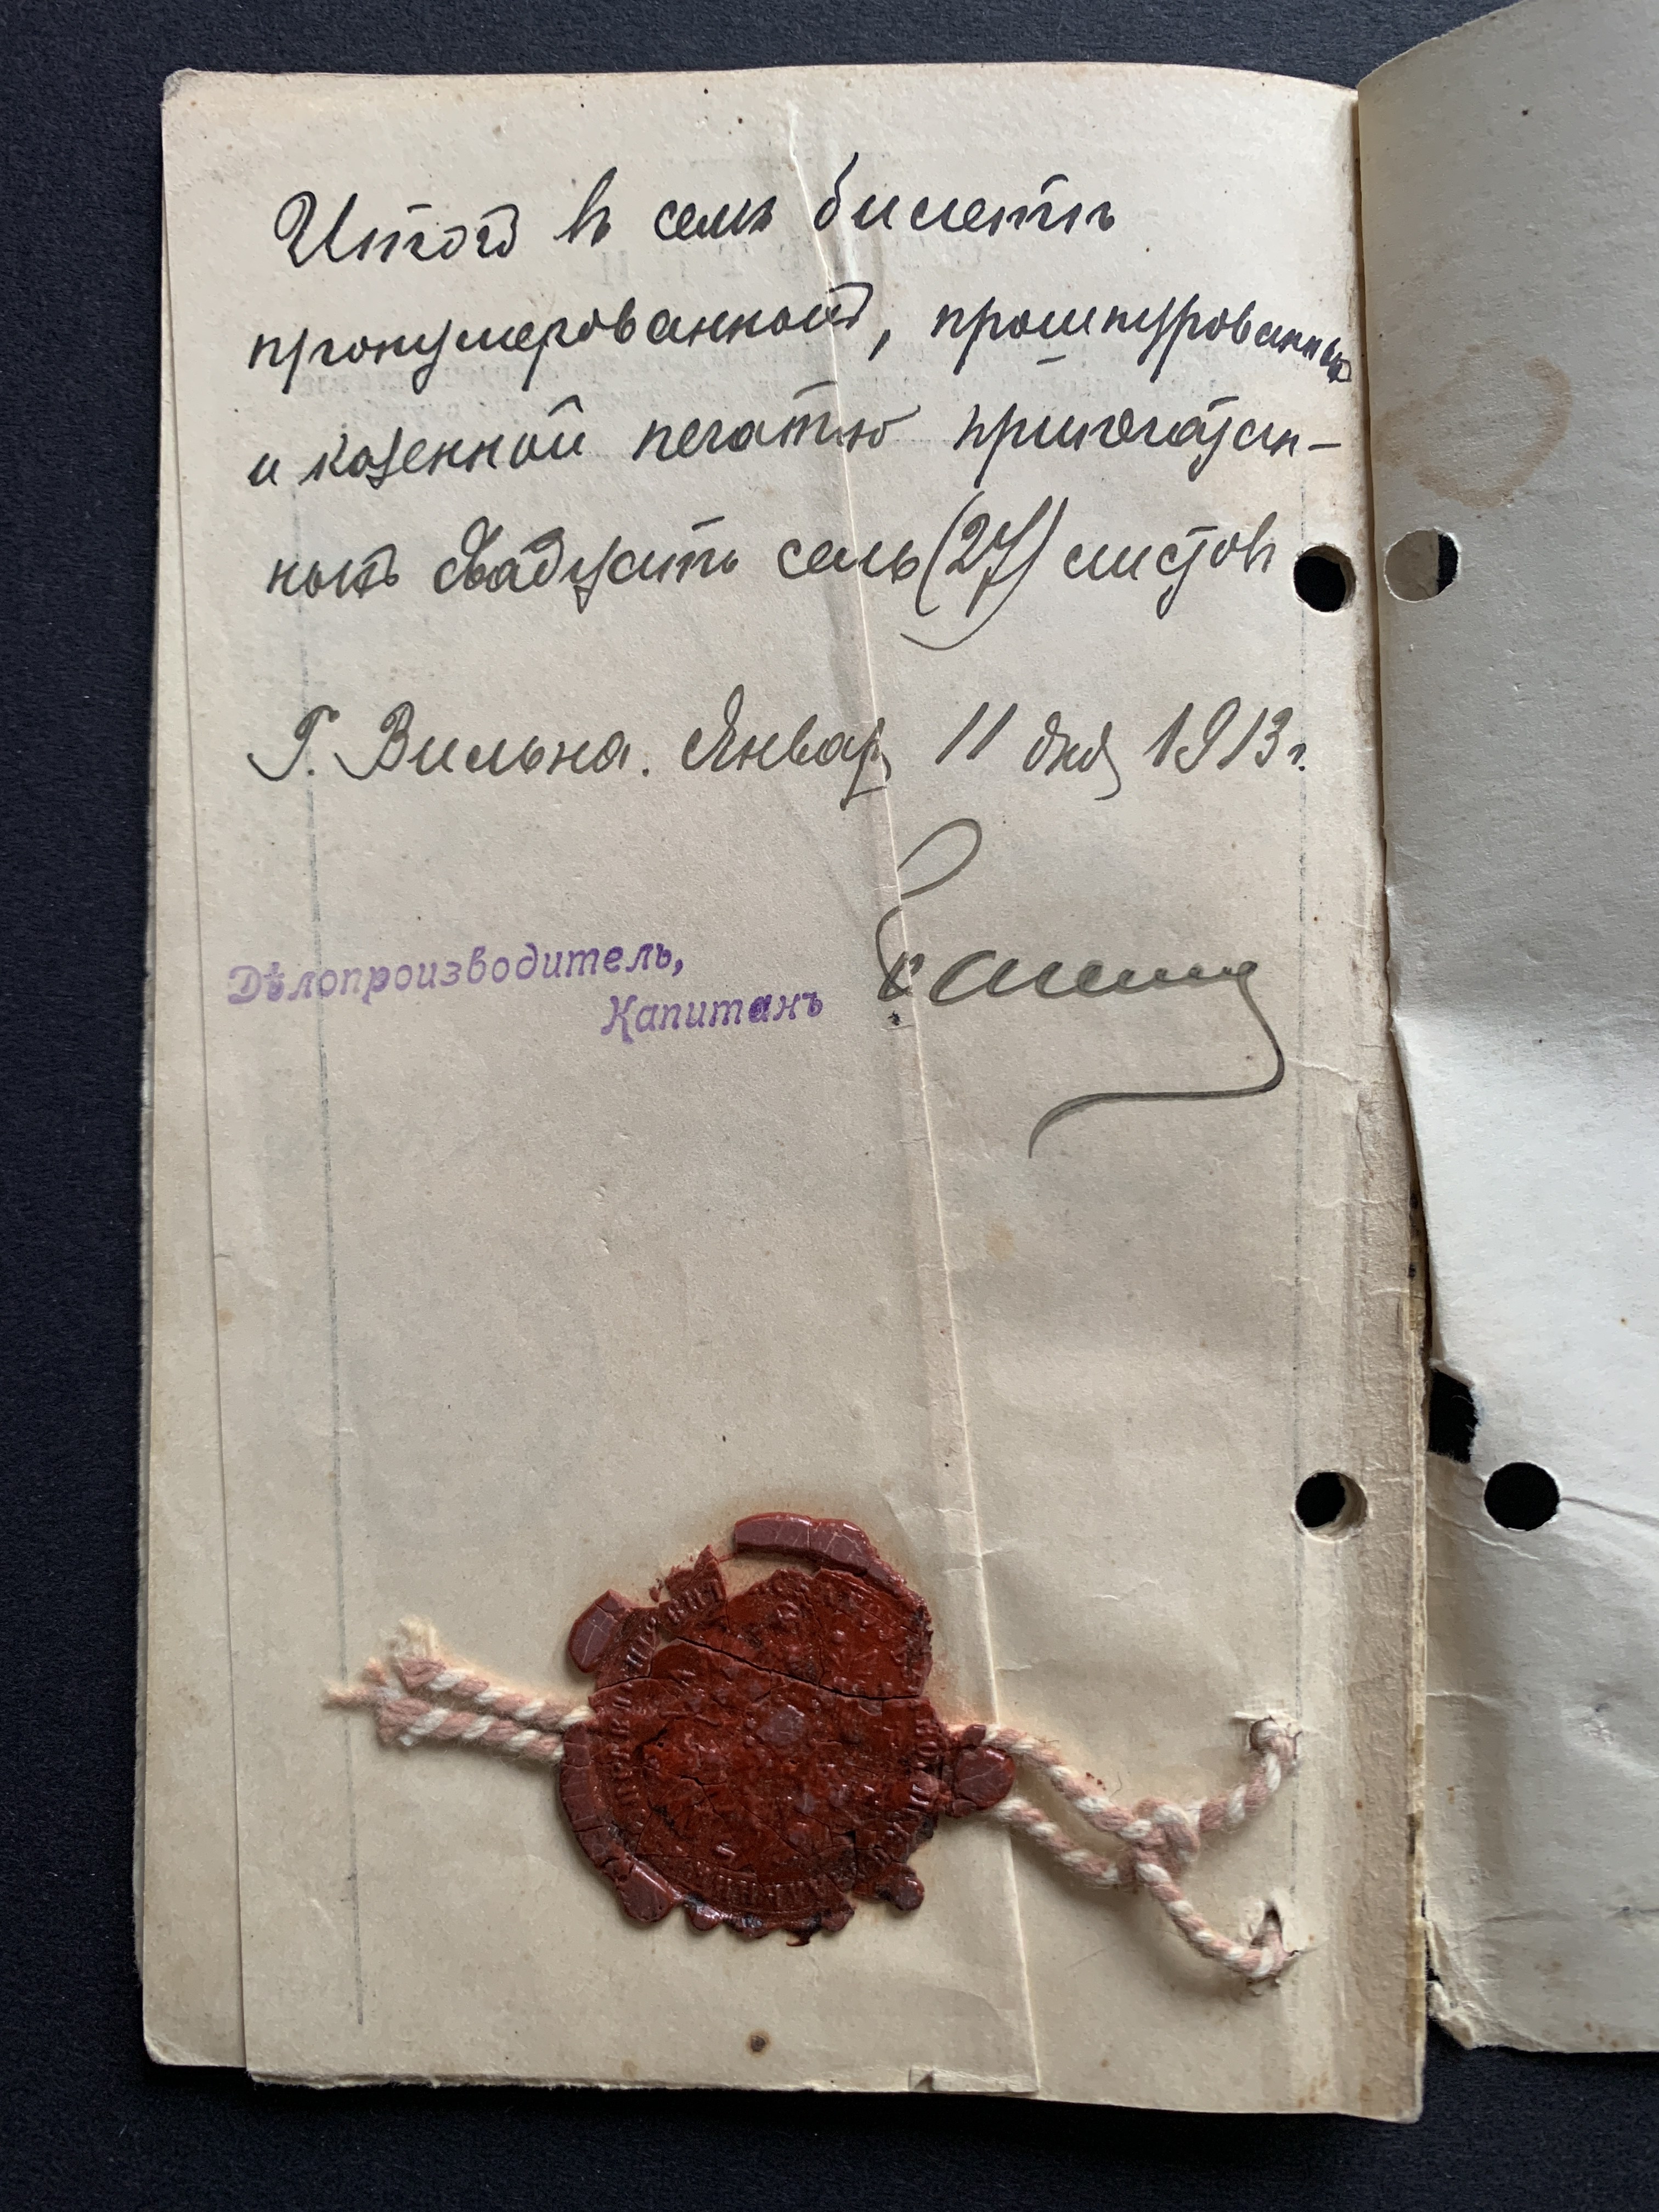 Итого въ семъ билетѣ
пронумерованной, прошнурованныхъ
и казенной печатью припечатан-
ныхъ двадцать семь (27) листовъ
Г. Вильна. Январ 11 дня 1913 г.
Дѣлопроизводитель,
Капитанъ